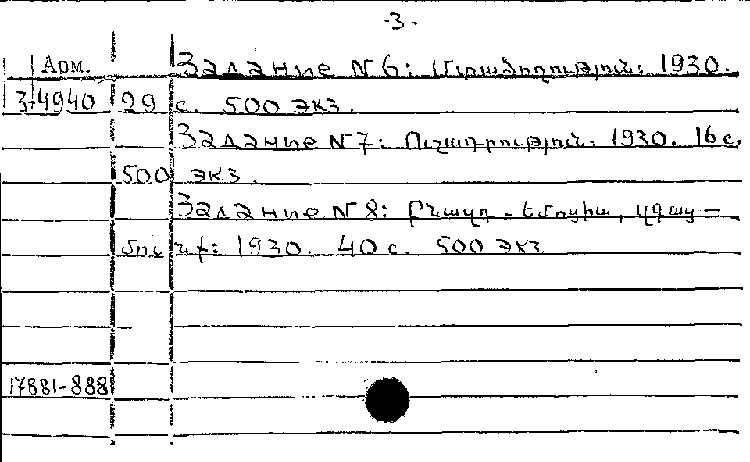 -3-
Арм. Задание N 6: Մտածողություն: 1930.
3-4940 29 с. 500 экз.
Задание N 7: Ուշադրություն. 1930. 16 с.
500 экз.
Задание N 8: էմոցիա, զգայ-
մունք: 1930. 40 с. 500 экз
17881-888